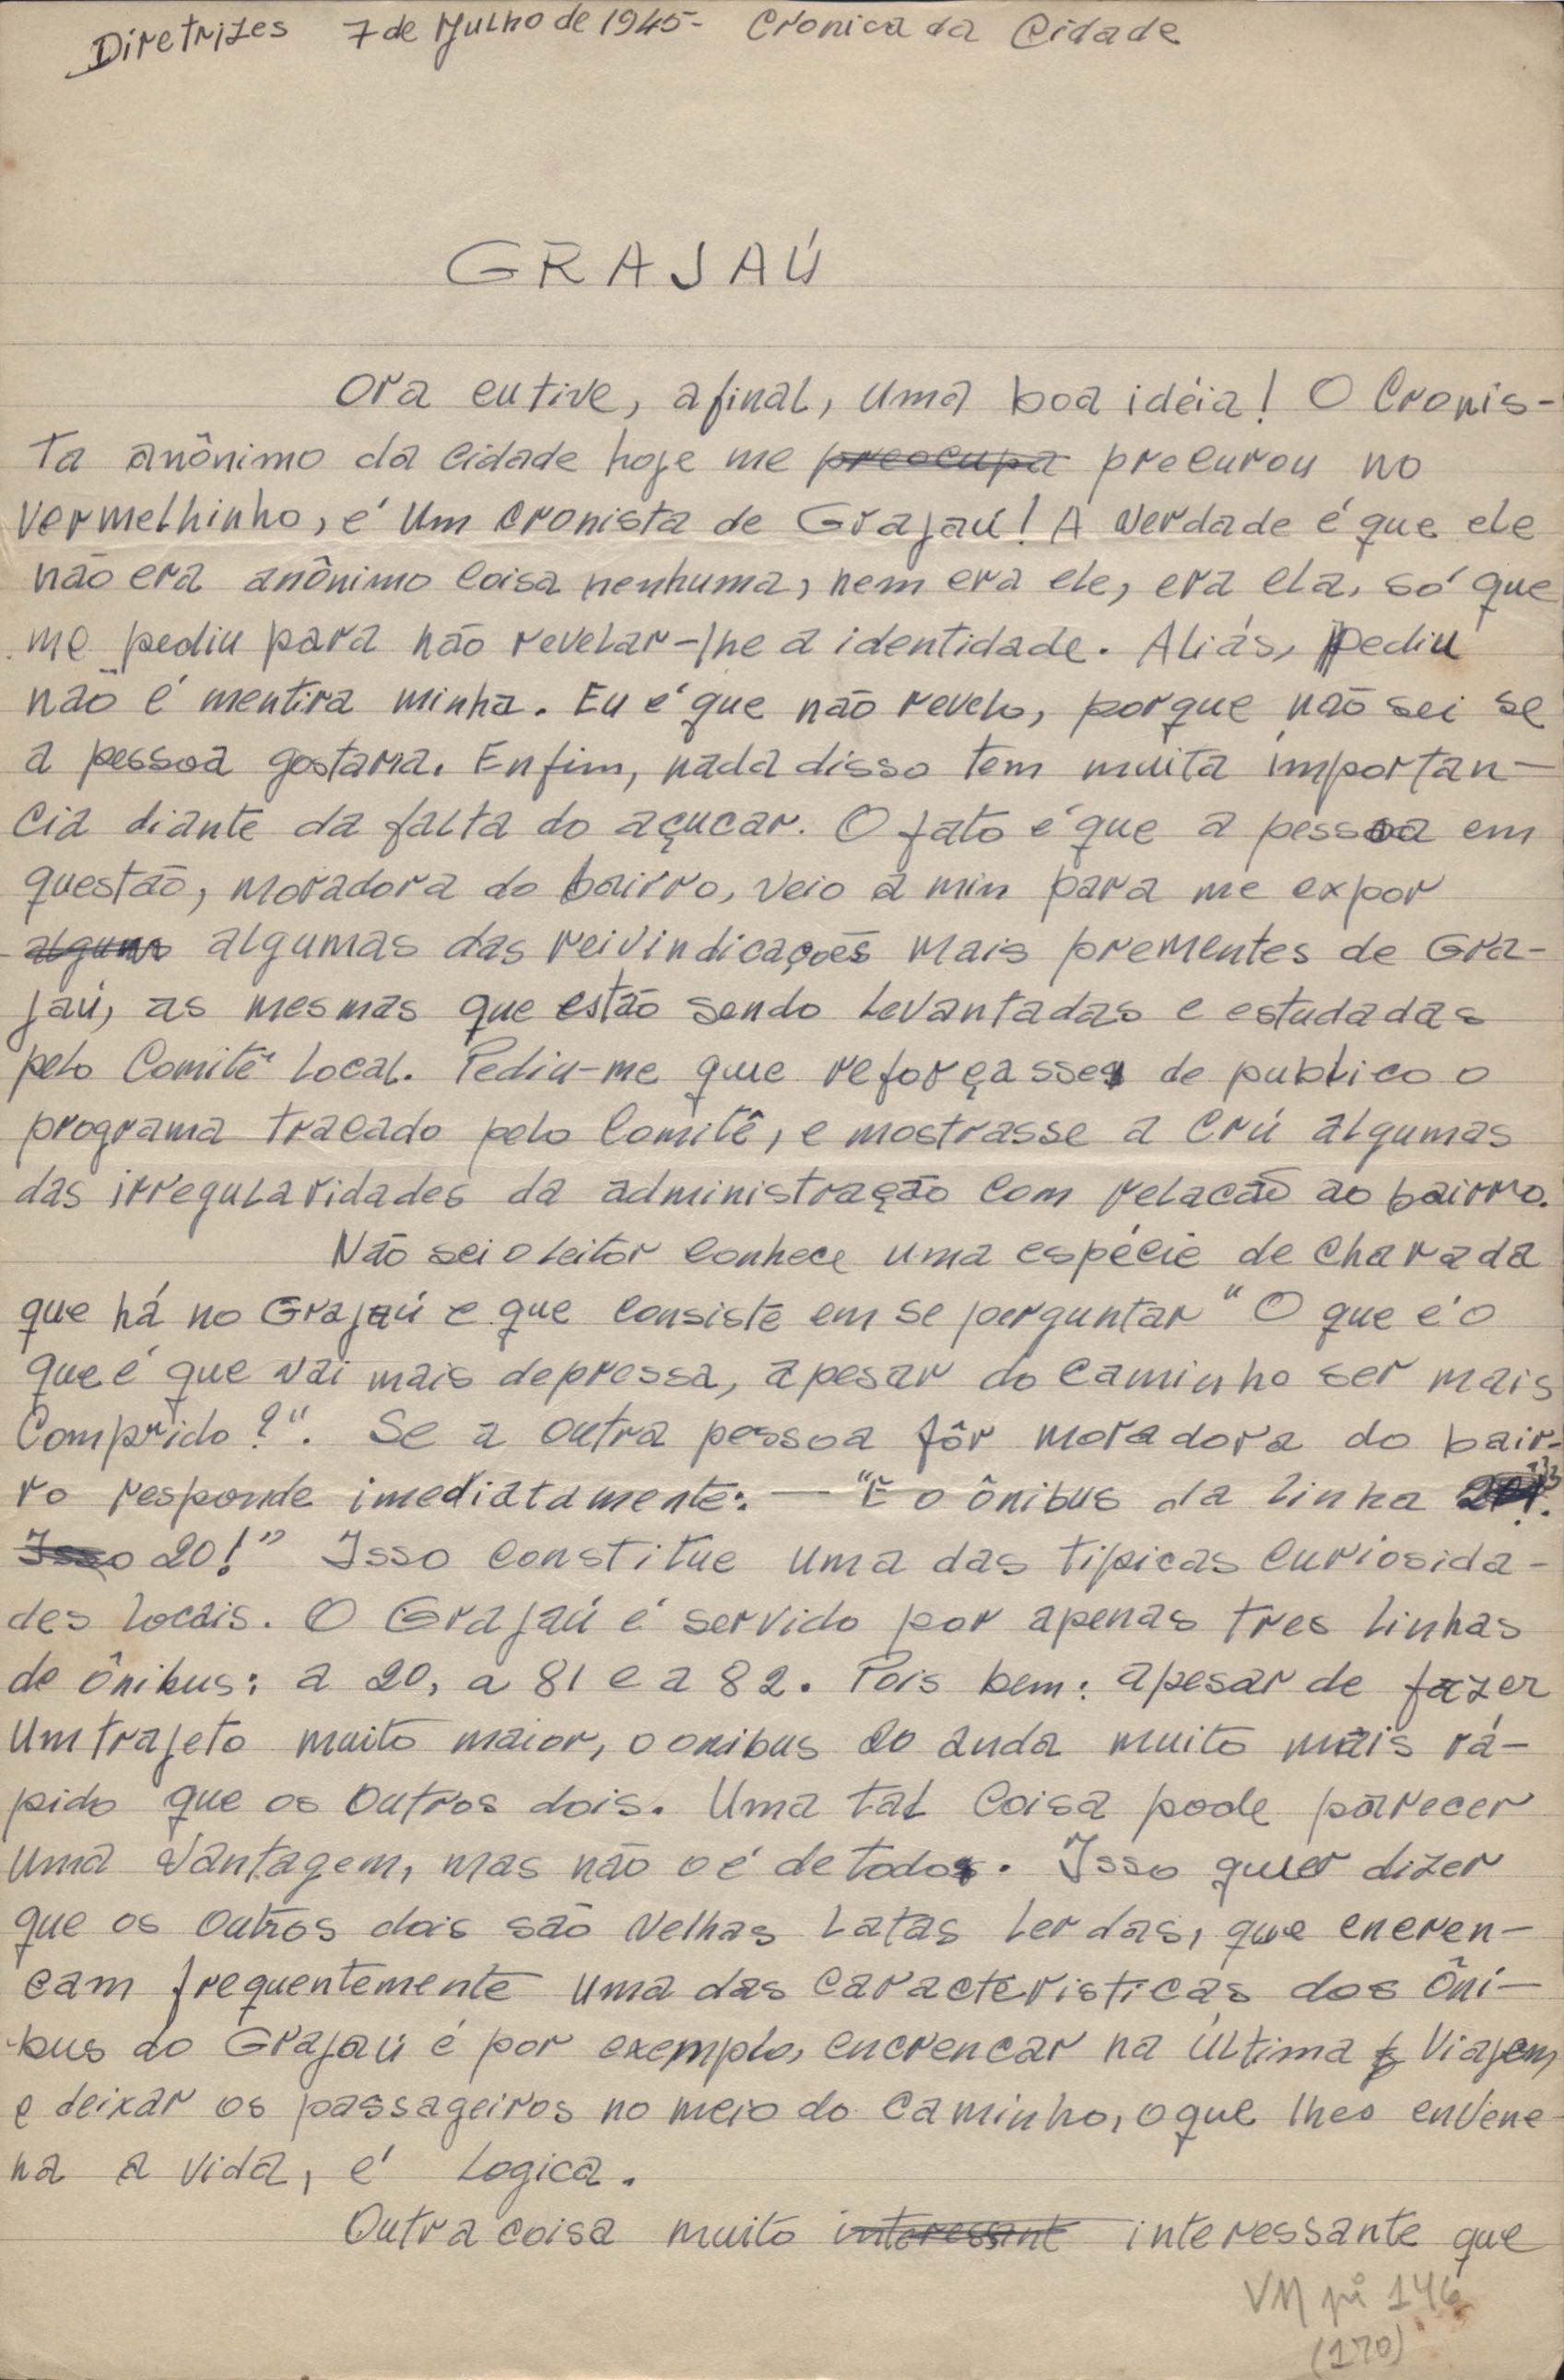 Diretrizes 7 de Julho de 1945 - Cronica da Cidade
GRAJAÚ
Ora eu tive, afinal, uma boa idéia! O Cronis-
ta anônimo da cidade hoje me preocupa procurou no
Vermelhinho, é um cronista de Grajaú! A verdade é que ele
não era anônimo coisa nenhuma, nem era ele, era ela, só que
me pediu para não revelar-lhe a identidade. Aliás, pediu
não é mentira minha. Eu é que não revelo, porque não sei se
a pessoa gostaria. Enfim, nada disso tem muita importan-
cia diante da falta do açucar. O fato é que a pessoa em
questão, moradora do bairro, veio a min para me expor
alguns algumas das reivindicações mais prementes de Gra-
jaú, as mesmas que estão sendo levantadas e estudadas
pelo Comitê local. Pediu-me que reforçasse de publico o
programa tracado pelo Comitê, e mostrasse a crú algumas
das irregularidades da administração com relacão ao bairro.
Não sei o leitor conhece uma espécie de charada
que há no Grajaú e que consiste em se perguntar "O que é o
que é que vai mais depressa, apesar do caminho ser mais
Comprido?". Se a outra pessoa fôr moradora do bair-
ro responde imediatamente: — "É o ônibus da linha 20!"
Isso 20!" Isso constitue uma das tipicas curiosida-
des locais. O Grajaú é servido por apenas tres linhas
de ônibus: a 20, a 81 e a 82. Pois bem: apesar de fazer
um trajeto muito maior, o onibus 20 anda muito mais rá-
pido que os outros dois. Uma tal coisa pode parecer
uma vantagem, mas não o é de todo. Isso quer dizer
que os outros dois são velhas latas lerdas, que encren-
cam frequentemente uma das caracteristicas dos ôni-
bus do Grajaú é por exemplo, encrencar na última viajem,
e deixar os passageiros no meio do caminho, o que lhes envene-
na a vida, é logica.
Outra coisa muito interessant interessante que
VM pi 146
(170)